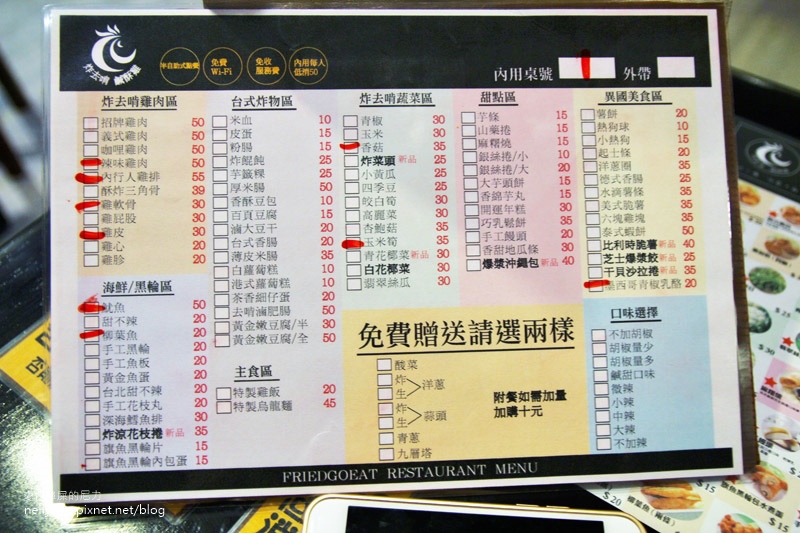 炸去啃 鹹酥雞
半自助式點餐
免費 Wi-Fi
免收 服務費
內用每人 低消50
內用桌號
外帶
炸去啃雞肉區
招牌雞肉 50
義式雞肉 50
咖哩雞肉 50
辣味雞肉 50
內行人雞排 55
酥炸三角骨 39
雞軟骨 30
雞屁股 30
雞皮 30
雞心 20
雞胗 20
海鮮/黑輪區
魷魚 50
甜不辣 20
柳葉魚 20
手工黑輪 20
手工魚板 20
黃金魚蛋 20
台北甜不辣 20
手工花枝丸 20
深海鱈魚排 30
炸涼花枝捲 新品 35
旗魚黑輪片 15
旗魚黑輪內包蛋 15
台式炸物區
米血 10
皮蛋 15
粉腸 15
炸餛飩 25
芋籤粿 25
厚米腸 50
香酥豆包 10
百頁豆腐 15
滷大豆干 20
台式香腸 20
薄皮米腸 35
白蘿蔔糕 10
港式蘿蔔糕 10
茶香細仔蛋 20
去啃滷肥腸 50
黃金嫩豆腐/半 30
黃金嫩豆腐/全 50
主食區
特製雞飯 20
特製烏龍麵 45
炸去啃蔬菜區
青椒 30
玉米 30
香菇 35
炸菜頭 新品 25
小黃瓜 25
四季豆 25
皎白筍 30
高麗菜 30
杏鮑菇 35
玉米筍 35
青花椰菜 新品 30
白花椰菜 30
翡翠絲瓜 30
甜點區
芋條 15
山藥捲 15
麻糬燒 15
銀絲捲/小 10
銀絲捲/大 20
大芋頭餅 15
香綿芋丸 15
開運年糕 30
巧乳鬆餅 35
手工饅頭 20
香甜地瓜條 30
爆漿沖繩包 新品 40
異國美食區
薯餅 20
熱狗球 10
小熱狗 15
起士條 20
洋蔥圈 35
德式香腸 25
水滴薯條 35
美式脆薯 35
六塊雞塊 35
泰式蝦餅 50
比利時脆薯 新品 40
芝士爆漿餃 新品 25
干貝沙拉捲 新品 35
墨西哥青椒乳酪 20
免費贈送請選兩樣
酸菜
炸 生 洋蔥
炸 生 蒜頭
青蔥
九層塔
附餐如需加量
加購十元
口味選擇
不加胡椒
胡椒量少
胡椒量多
鹹甜口味
微辣
小辣
中辣
大辣
不加辣
FRIEDGOEAT RESTAURANT MENU